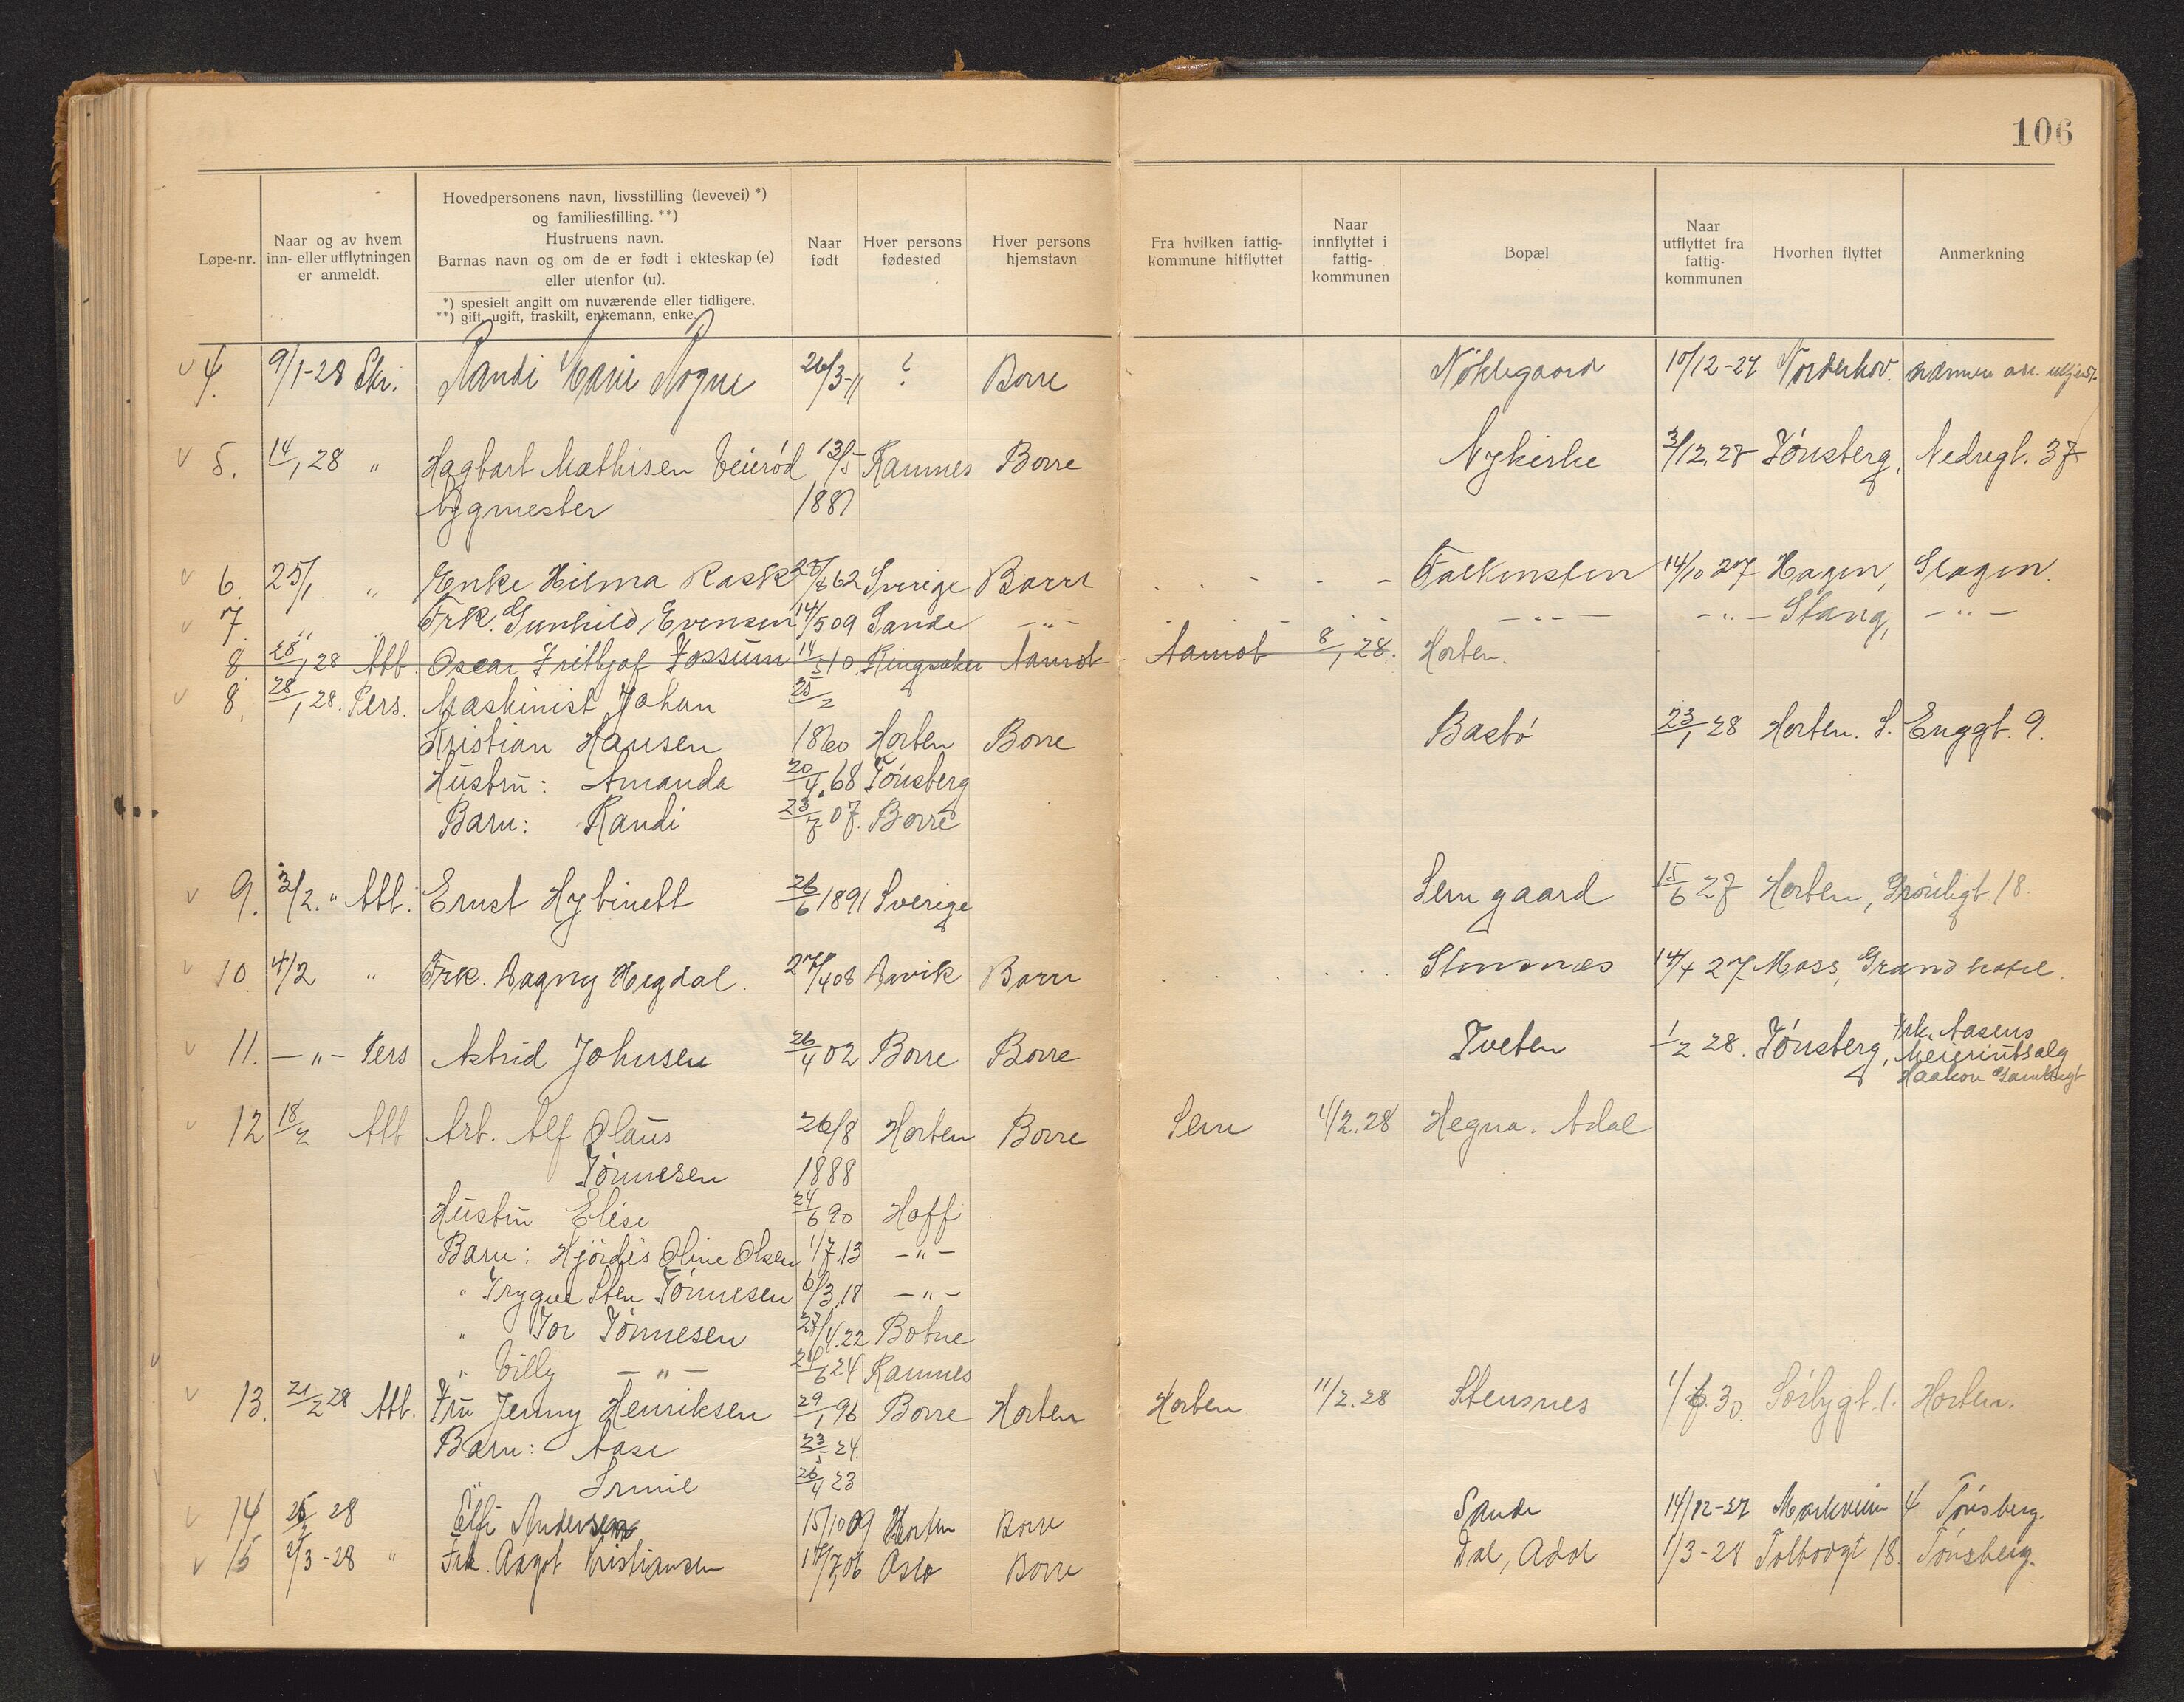 106
Løpe-nr.
Naar og av hvem
inn- eller utflytningen
er anmeldt.
Hovedpersonens navn, livsstilling (levevei) *)
og familiestilling. **)
Hustruens navn.
Barnas navn og om de er født i ekteskap (e)
eller utenfor (u).
*) spesielt angitt om nuværende eller tidligere.
**) gift, ugift, fraskilt, enkemann, enke.
Naar
født
Hver persons
fødested
Hver persons
hjemstavn
Fra hvilken fattig-
kommune hitflyttet
Naar
innflyttet i
fattig-
kommunen
Bopæl
Naar
utflyttet fra
fattig-
kommunen
Hvorhen flyttet
Anmerkning
4. 9/1-28 Skr. Randi Marie Rogne 26/3-11 ? Borre Nøklegaard 10/12-27 Norderhov. nærmere adr. ukjendt.
5. 14/1 28 " Hagbart Mathisen Veierød 13/5 Ramnes Borre Nykirke 3/12.27 Tönsberg, Nedregt. 37
bygmester 1887
6. 25/1 " Enke Hilma Rask 62 Sverige Borre Falkensten 14/10 27 Hagen, Slagen.
7 " " Frk. Gunhild Evensen 14/5 09 Sande -"- -"- -"- Stang, -"-
8. 28/1 28 Att. Oscar Frithjof Fossum 14/5 10. Ringsaker Aamot Aamot 8/1 28. Horten.
8. 28/1 28. Pers. Maskinist Johan 25/2
Kristian Hansen 1860 Horten Borre Bastö 23/1 28 Horten. S. Enggt. 9.
Hustru: Amanda 20/4.68 Tönsberg
Barn: Randi 23/7 07. Borre
9. 3/2. " Att. Ernst Hybinett 26/6 1891 Sverige Semgaard 15/6 27 Horten, Grönligt. 18.
10 4/2 " Frk. Dagny Hegdal. 27/4 08 Borre Stensnæs 14/4 27 Moss, Grand hotel.
11. -"- Pers Astrid Johnsen 26/4 02 Borre Borre Tveten 1/2 28. Tönsberg, Frk. Aasens
Meieriutsalg
Haakon Gamlesgt
12 18/2 Att Arb. Alf Olaus 26/8 Horten Borre Sem 1/2.28 Hegna. Adal
Tönnesen 1888
Hustru Elise 24/6 90 Hoff
Barn: Hjördis Oline Olsen 1/7.13 -"-
" Trygve Sten Tönnesen 6/3.18 -"-
" Tor Tönnesen 27/4.22 Botne
" Villy -"- 24/6 24 Ramnes
13. 21/2 28 Att. Fru Jenny Henriksen 29/1 96 Borre Horten Horten 11/2.28 Stensnes 1/6.30. Sörbygt. 1. Horten.
Barn: Aase 23/5 24.
" Irmie 26/4 23
14 25/2 28 Elfi Andersen 15/10 09 Horten Borre Sande 14/12-27 Markveien 4 Tönsberg.
15 2/3-28 " Frk. Aagot Kristiansen 17/7.06 Oslo Borre Dal, Adal 1/3-28 Tolbodgt 18. Tönsberg.